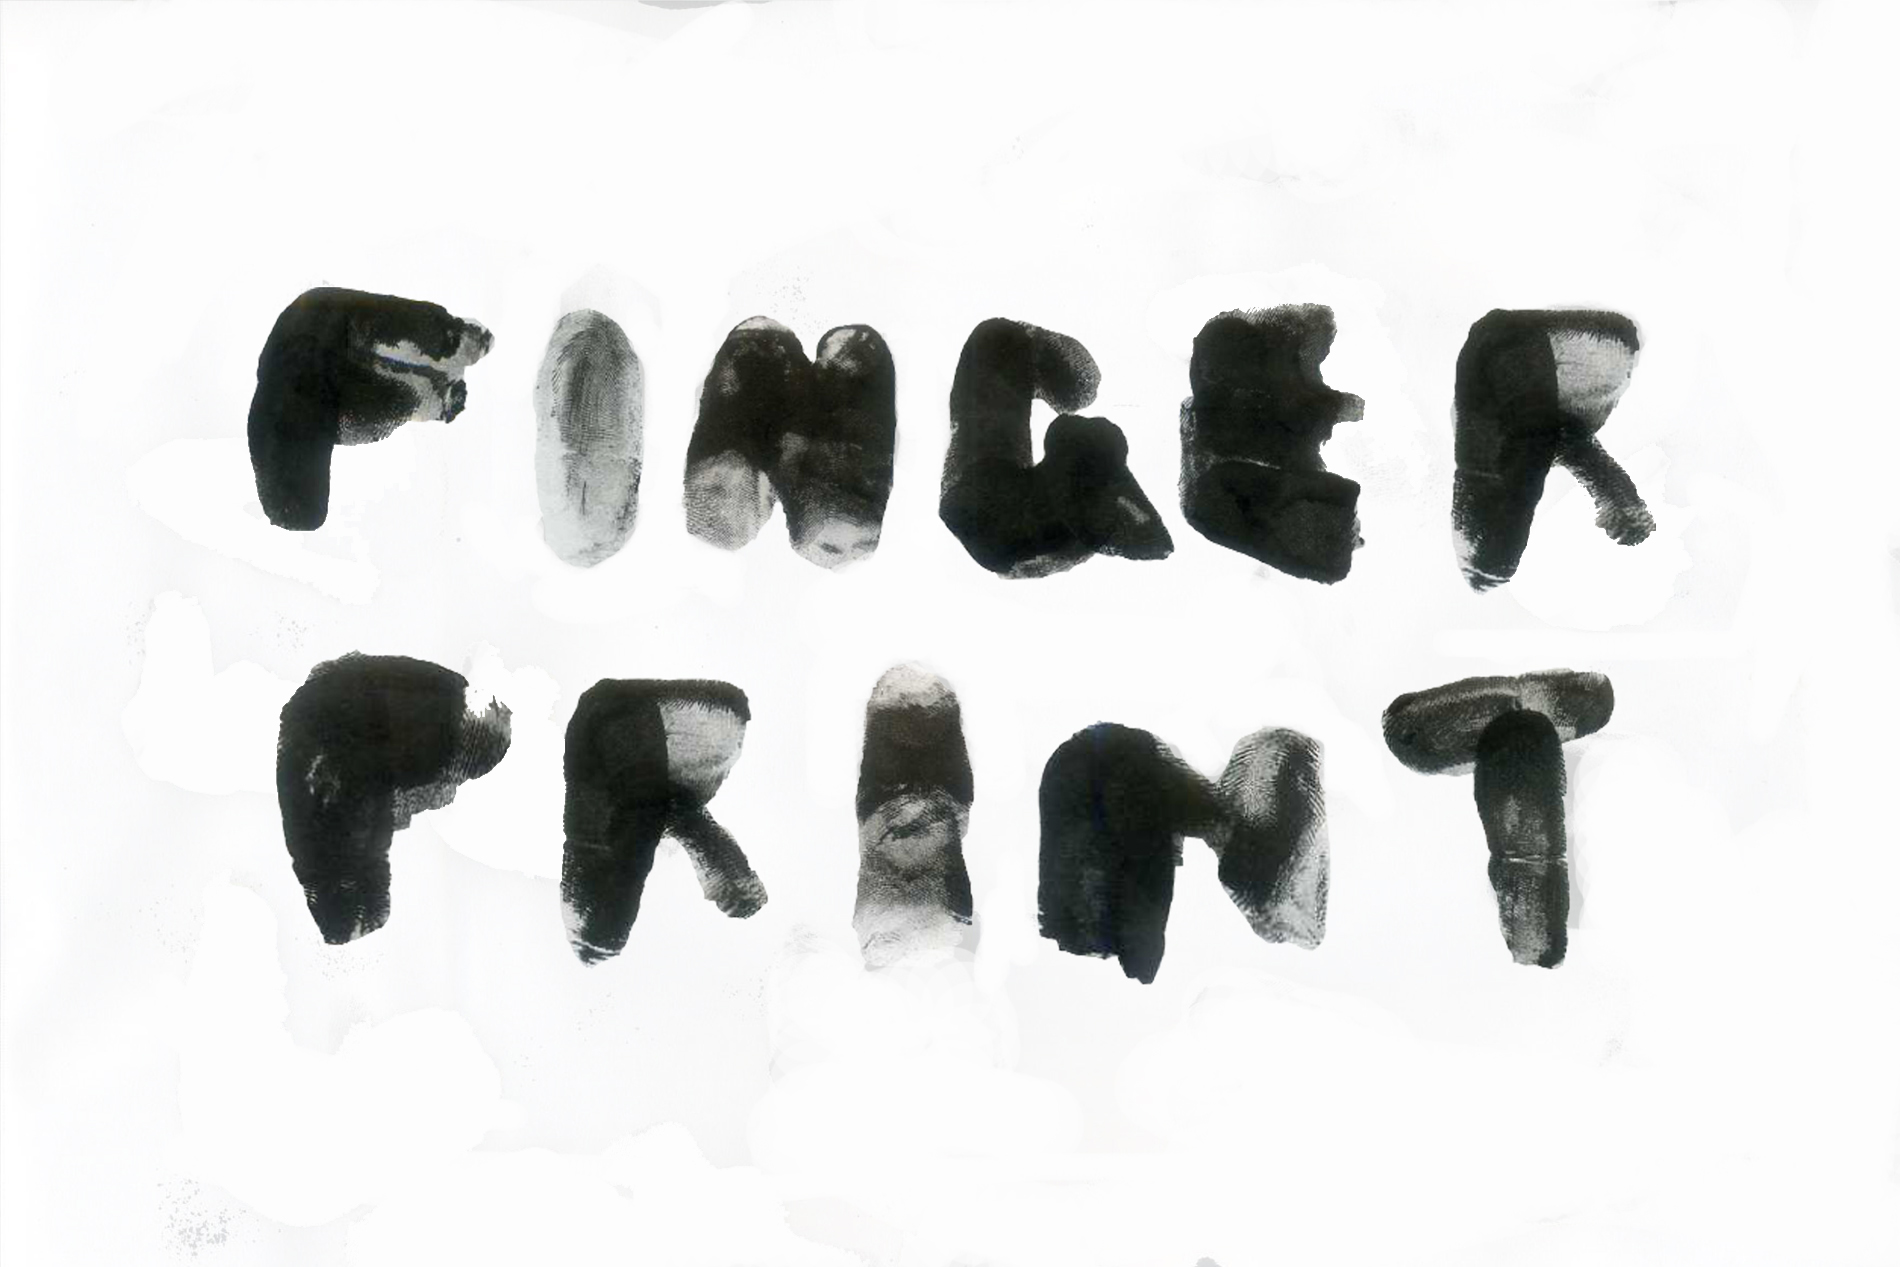 FINGER
PRINT